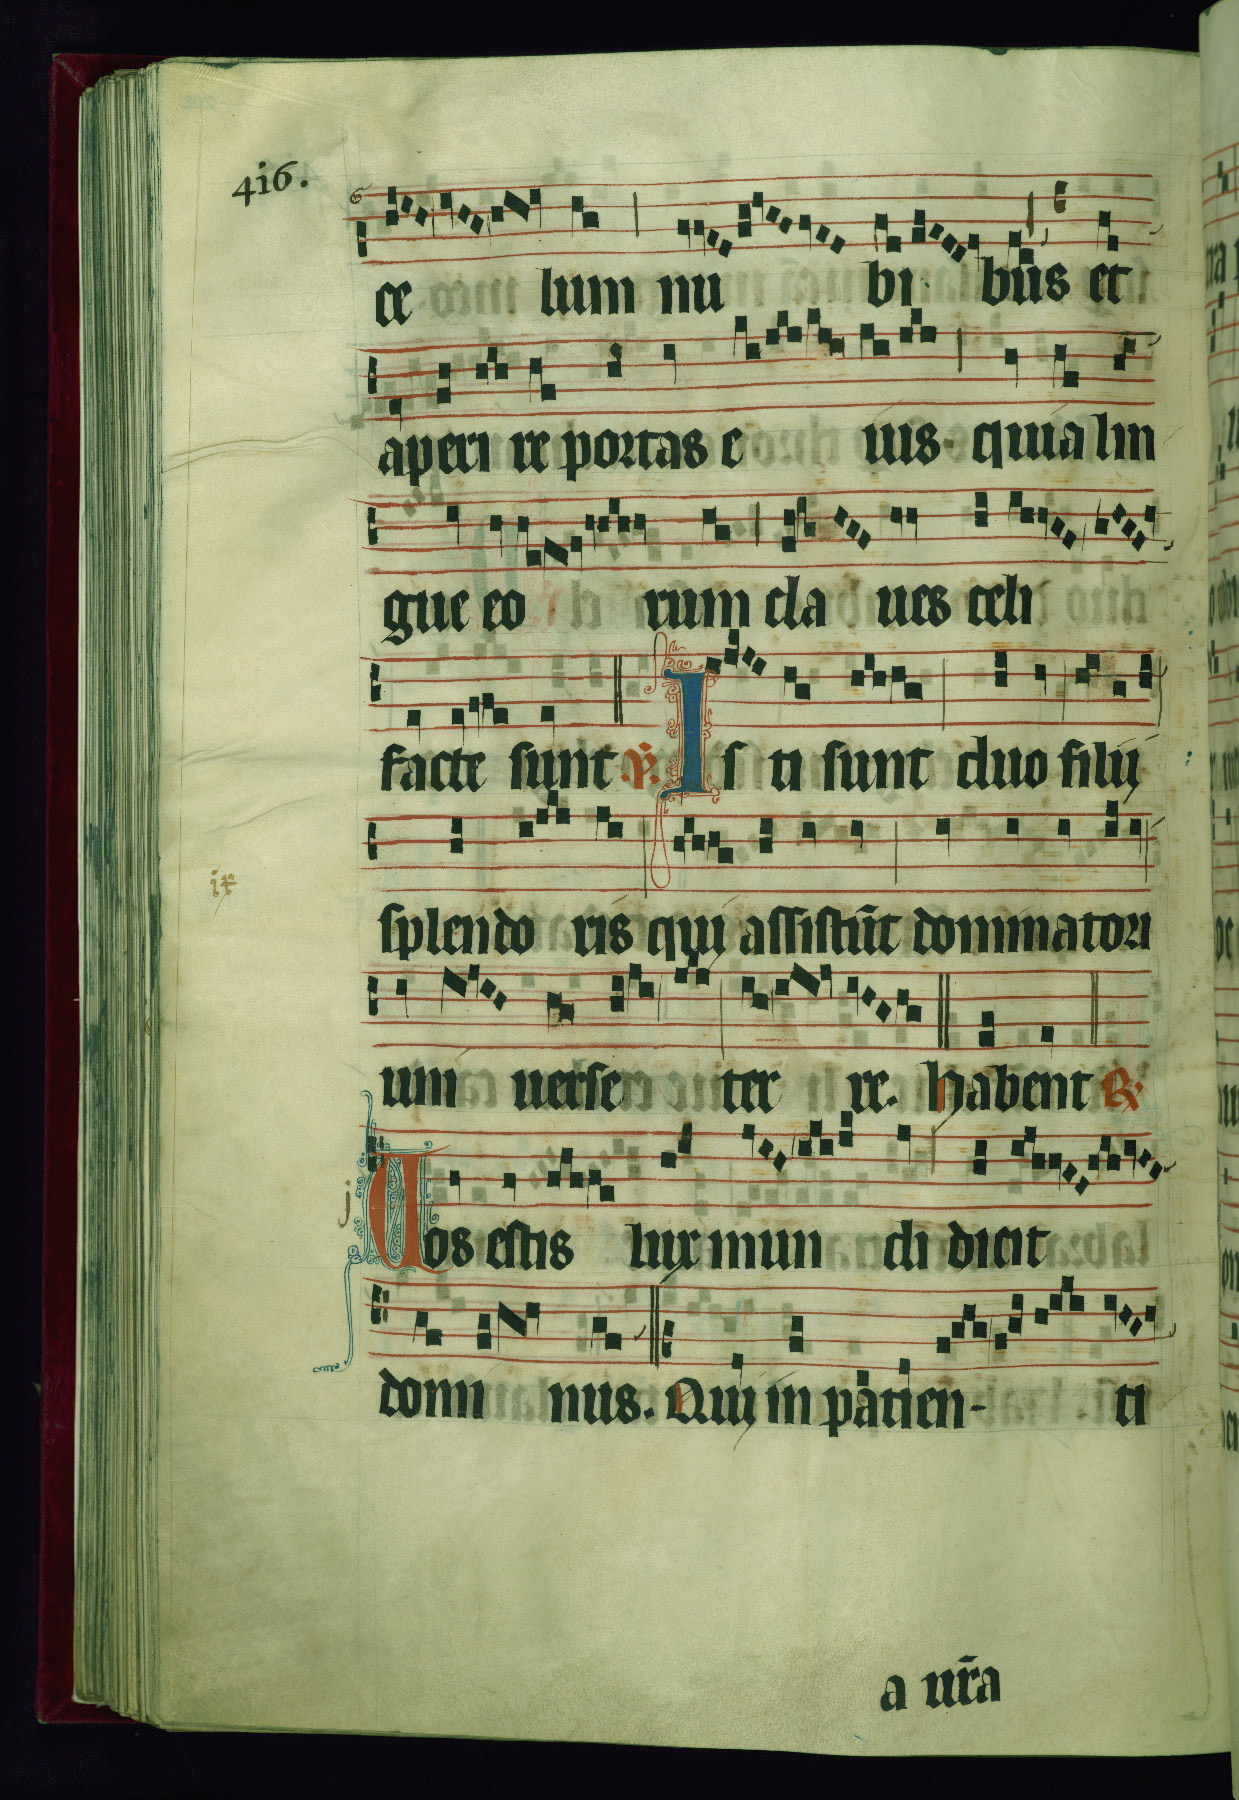 416.
ce lum nu bi bus et
aperi re portas e ius quia lin
gue eo rum cla ues celi
facte sunt ℣. Is ti sunt duo filij
splendo ris qui assistūt dominatori
um uerse ter re. habent ℟
j Uos estis lux mun di dicit
domi nus. Qui in patien- ti
a ur̄a